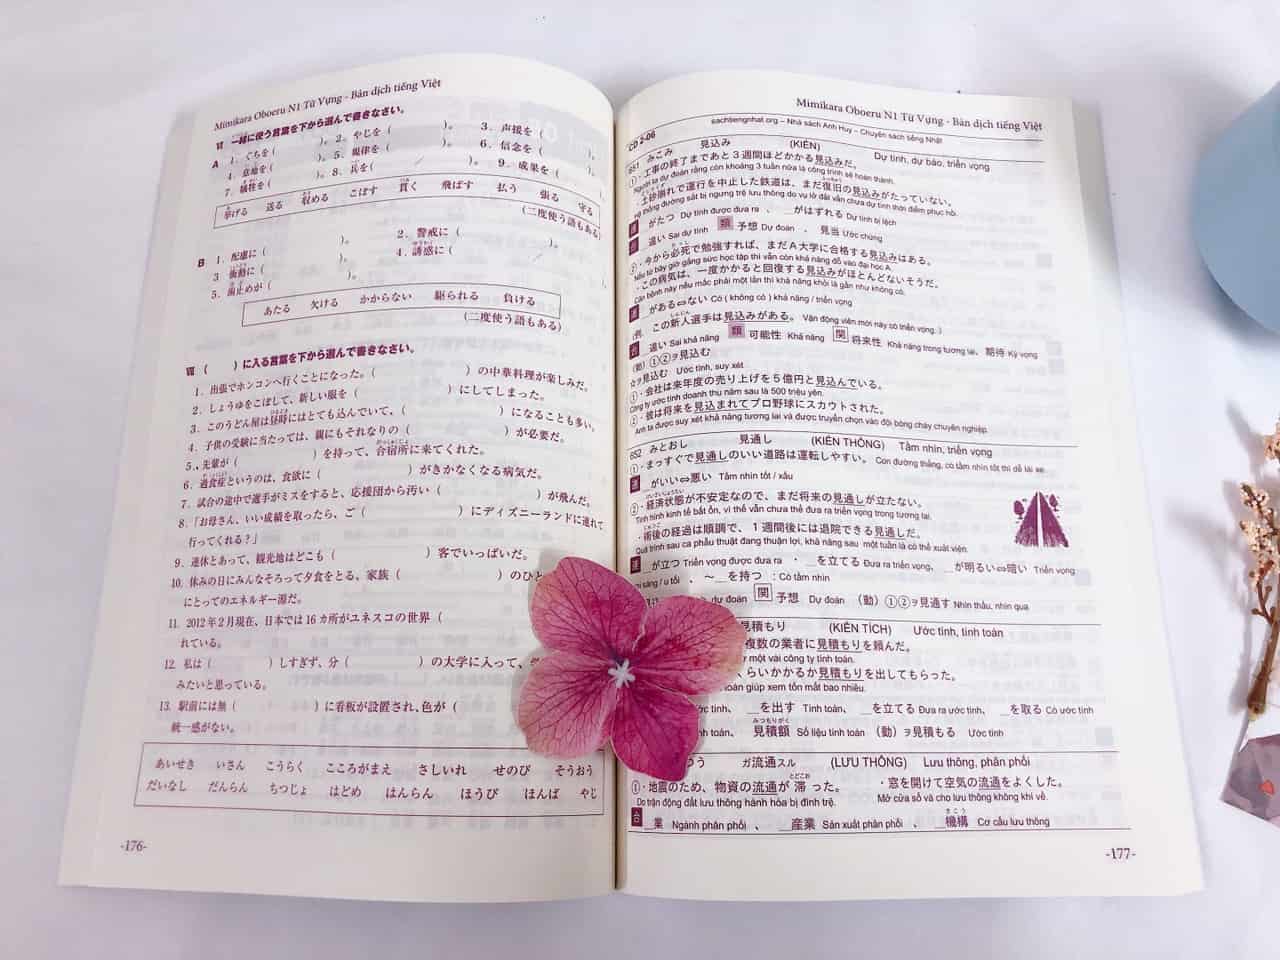 Mimikara Oboeru N1 Từ Vựng - Bản dịch tiếng Việt
Ⅵ 一緒に使う言葉を下から選んで書きなさい。
A 1. ぐちを（ ）。 2. やじを（ ）。 3. 声援を（ ）。
4. 意地を（ ）。 5. 規律を（ ）。 6. 信念を（ ）。
7. 犠牲を（ ）。 8. 兵を（ ）。 9. 成果を（ ）。
挙げる 送る 収める こぼす 貫く 飛ばす 払う 張る 守る
（二度使う語もある）
B 1. 配慮に（ ）。 2. 警戒に（ ）。
3 衝動に（ ）。 4. 誘惑に（ ）。
5. 歯止めが（ ）。
あたる 欠ける かからない 駆られる 負ける
（二度使う語もある）
Ⅶ （ ）に入る言葉を下から選んで書きなさい。
1. 出張でホンコンへ行くことになった。（ ）の中華料理が楽しみだ。
2. しょうゆをこぼして、新しい服を（ ）にしてしまった。
3. このうどん屋は昼時にはとても込んでいて、（ ）になることも多い。
4. 子供の受験に当たっては、親にもそれなりの（ ）が必要だ。
5. 先輩が（ ）を持って、合宿所に来てくれた。
6. 過食症というのは、食欲に（ ）がきかなくなる病気だ。
7. 試合の途中で選手がミスをすると、応援団から汚い（ ）が飛んだ。
8. 「お母さん、いい成績を取ったら、ご（ ）にディズニーランドに連れて
行ってくれる？」
9. 連休とあって、観光地はどこも（ ）客でいっぱいだ。
10. 休みの日にみんなそろって夕食をとる、家族（ ）のひと
にとってのエネルギー源だ。
11. 2012年2月現在、日本では16カ所がユネスコの世界（
れている。
12. 私は（ ）しすぎず、分（ ）の大学に入って、
みたいと思っている。
13. 駅前には無（ ）に看板が設置され、色が（
統一感がない。
あいせき いさん こうらく こころがまえ さしいれ せのび そうおう
だいなし だんらん ちつじょ はどめ はんらん ほうび ほんば やじ
-176-
Mimikara Oboeru N1 Từ Vựng - Bản dịch tiếng Việt
sachtiengnhat.org – Nhà sách Anh Huy – Chuyên sách tiếng Nhật
CD 2-06
651 みこみ 見込み (KIẾN) Dự tính, dự báo, triển vọng
①・工事の終了まであと3週間ほどかかる見込みだ。
Người ta dự đoán rằng còn khoảng 3 tuần nữa là công trình sẽ hoàn thành.
・土砂崩れで運行を中止した鉄道は、まだ復旧の見込みがたっていない。
Hệ thống đường sắt bị ngưng trệ lưu thông do vụ lở đất vẫn chưa dự tính thời điểm phục hồi.
連 __がたつ Dự tính được đưa ra 、 __がはずれる Dự tính bị lệch
合 __違い Sai dự tính 類 予想 Dự đoán . 見当 Ước chừng
②・今から必死で勉強すれば、まだA大学に合格する見込みはある。
Nếu từ bây giờ gắng sức học tập thì vẫn còn khả năng đỗ vào đại học A.
・この病気は、一度かかると回復する見込みがほとんどないそうだ。
Căn bệnh này nếu mắc phải một lần thì khả năng khỏi là gần như không có.
連 __がある⇔ない Có ( không có ) khả năng / triển vọng
(例. この新人選手は見込みがある。 Vận động viên mới này có triển vọng. )
合 __違い Sai khả năng 類 可能性 Khả năng 関 将来性 Khả năng trong tương lai、期待 Kỳ vọng
(動) ①②ヲ見込む
☆ヲ見込む Ước tính, suy xét
①・会社は来年度の売り上げを5億円と見込んでいる。
Công ty ước tính doanh thu năm sau là 500 triệu yên.
②・彼は将来を見込まれてプロ野球にスカウトされた。
Anh ta được suy xét khả năng tương lai và được truyển chọn vào đội bóng chày chuyên nghiệp.
652 みとおし 見通し (KIẾN THÔNG) Tầm nhìn, triển vọng
①・まっすぐで見通しのいい道路は運転しやすい。 Con đường thẳng, có tầm nhìn tốt thì dễ lái xe
連 __がいい⇔悪い Tầm nhìn tốt / xấu
②・経済状態が不安定なので、まだ将来の見通しが立たない。
Tình hình kinh tế bất ổn, vì thế vẫn chưa thể đưa ra triển vọng trong tương lai.
・術後の経過は順調で、1週間後には退院できる見通しだ。
Quá trình sau ca phẫu thuật đang thuận lợi, khả năng sau một tuần là có thể xuất viện.
連 __が立つ Triển vọng được đưa ra ・ __を立てる Đưa ra triển vọng、 __が明るい⇔暗い Triển vọng
sáng / u tối 、 〜__を持つ : Có tầm nhìn
dự đoán 関 予想 Dự đoán (動) ①②ヲ見通す Nhìn thấu, nhìn qua
見積もり (KIẾN TÍCH) Ước tính, tính toán
複数の業者に見積もりを頼んだ。
một vài công ty tính toán.
、らいかかるか見積もりを出してもらった。
toán giúp xem tốn mất bao nhiêu.
ước tính、 __を出す Tính toán、 __を立てる Đưa ra ước tính、 __を取る Có ước tính
tính toán、 見積額 Số liệu tính toán (動) ヲ見積もる Ước tính
ガ流通スル (LƯU THÔNG) Lưu thông, phân phối
①・地震のため、物資の流通が滞った。 ・窓を開けて空気の流通をよくした。
Do trận động đất lưu thông hành hóa bị đình trệ. Mở cửa sổ và cho lưu thông không khí vê.
合 __業 Ngành phân phối 、 __産業 Sản xuất phân phối 、 __機構 Cơ cấu lưu thông
-177-